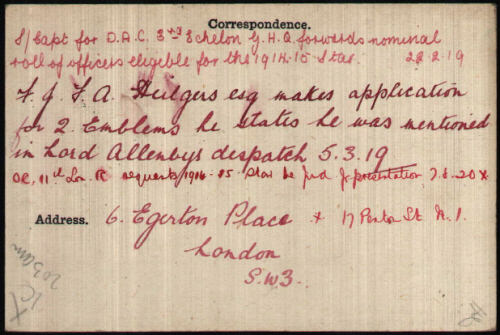 Correspondence.
S/Capt for D.A.C. 3rd Echelon G.H.Q forwards nominal
roll of officers eligible for the 1914-15 Star. 22-2-19
F. J. F. A. esq makes application
for 2 Emblems he states he was mentioned
in Lord Allenbys despatch 5.3.19
OC, 11th Lon. R requests 1914-15 Star be for presentation,
Address. 6. Egerton Place x 17 Penton St N.1.
London
S.W3.